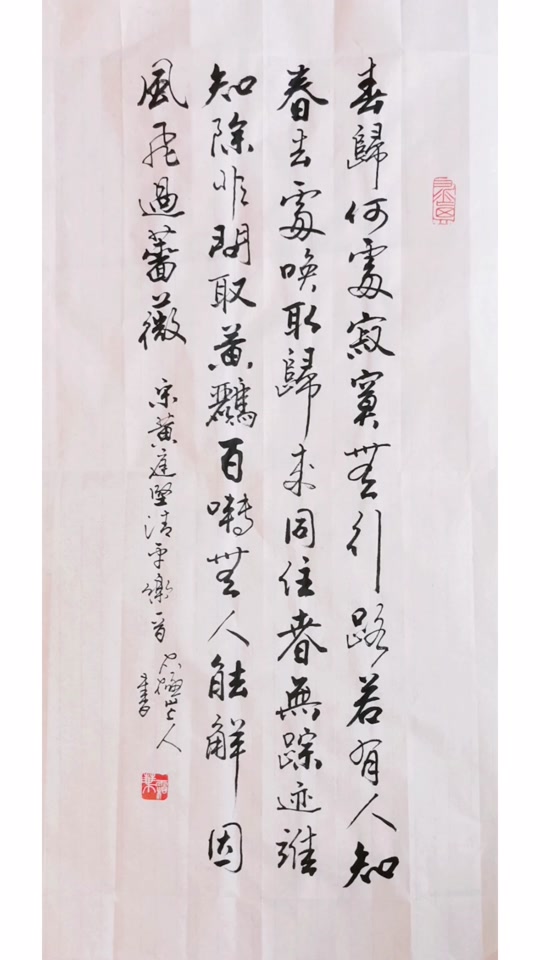 春歸何處寂寞無行路若有人知
春去處喚取歸來同住春無踪迹誰
知除非問取黃鸝百囀無人能解因
風飛過薔薇
宋黃庭堅清平樂晉
山人
書